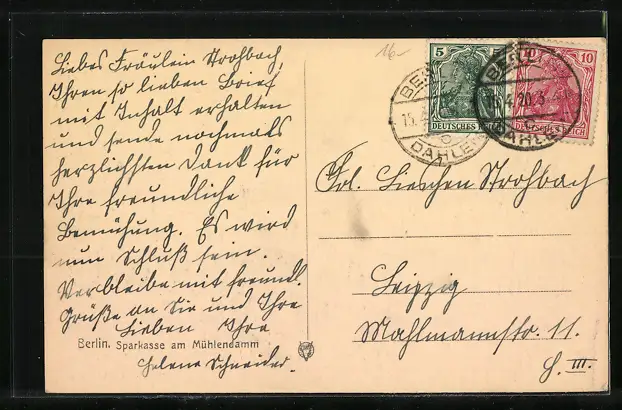 Liebes Fräulein Strohbach,
Ihren so lieben Brief
mit Inhalt erhalten
und sende nochmals
herzlichsten Dank für
Ihre freundliche
Bemühung. Es wird
nun Schluß sein.
Verbleibe mit freundl.
Grüße an Sie und Ihre
Lieben Ihre
Helene Schneider.
Berlin. Sparkasse am Mühlendamm
16-
5
DEUTSCHES REICH
10
DEUTSCHES REICH
BERLIN
15.4.20.3
DAHLEM
Frl. Lieschen Strohbach
Leipzig
Mahlmannstr. 11.
H. III.